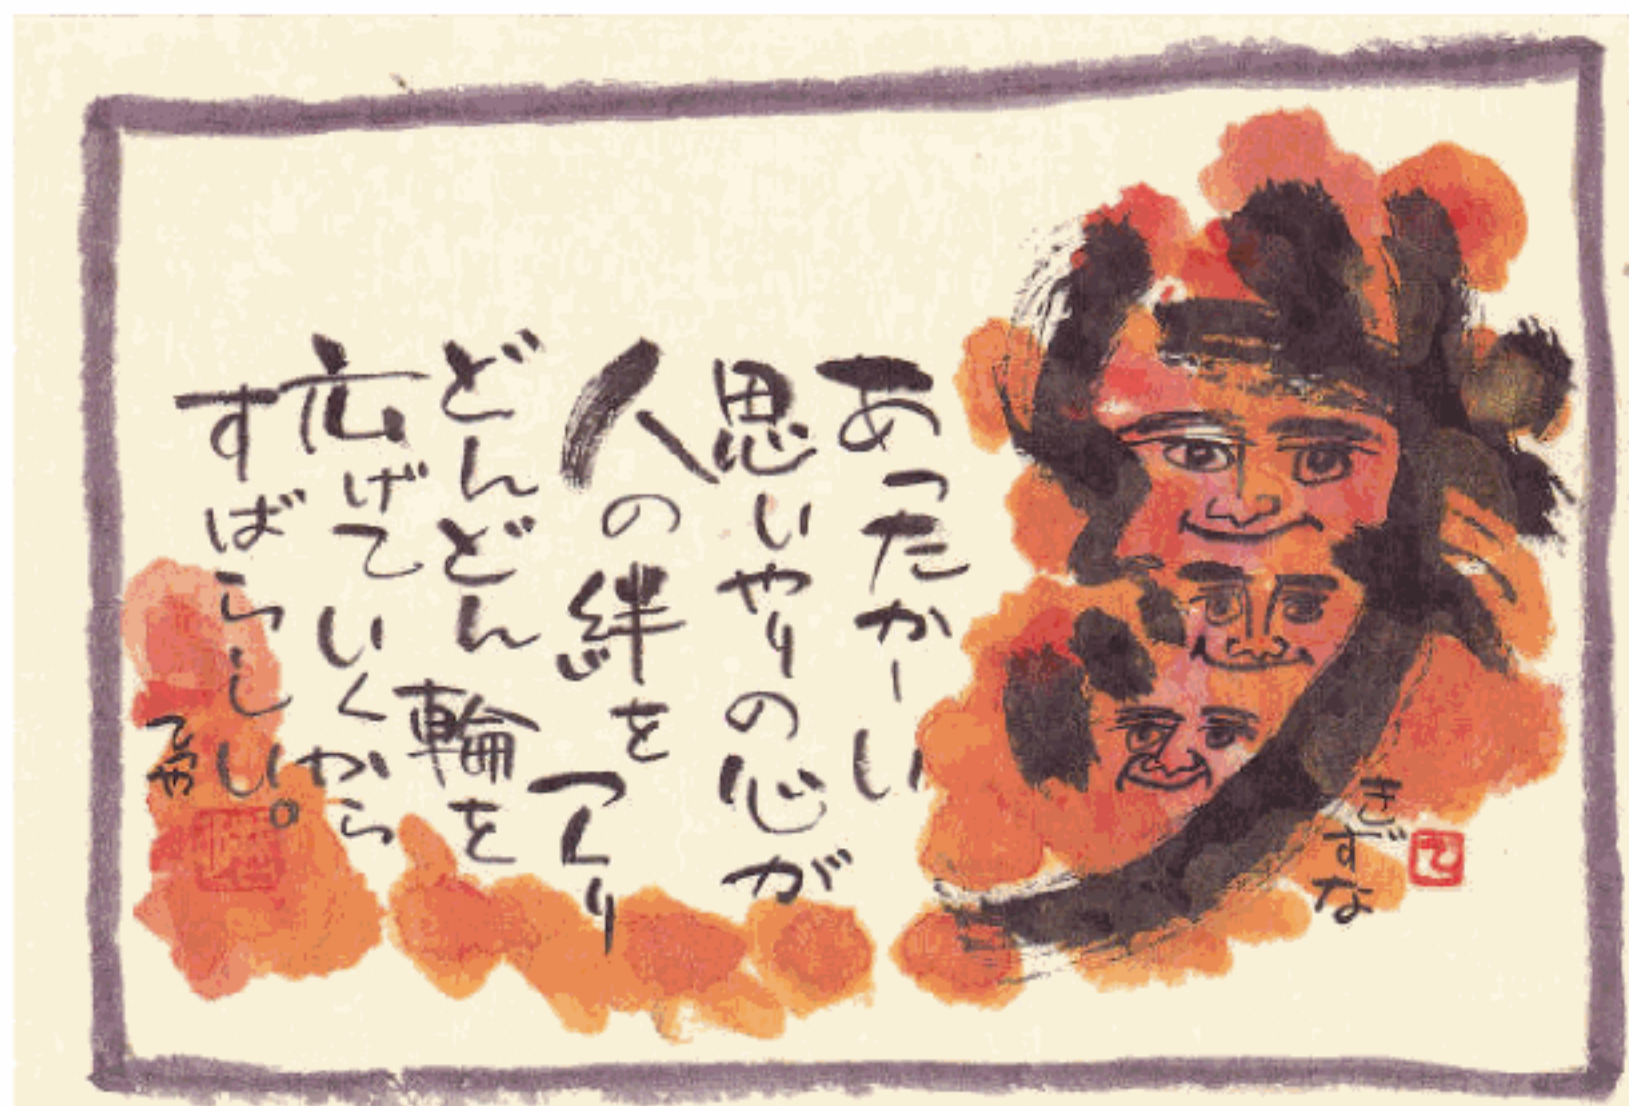 きずな
て
あったかーい
思いやりの心が
人の絆をつくり
どんどん輪を
広げていくから
すばらしい。